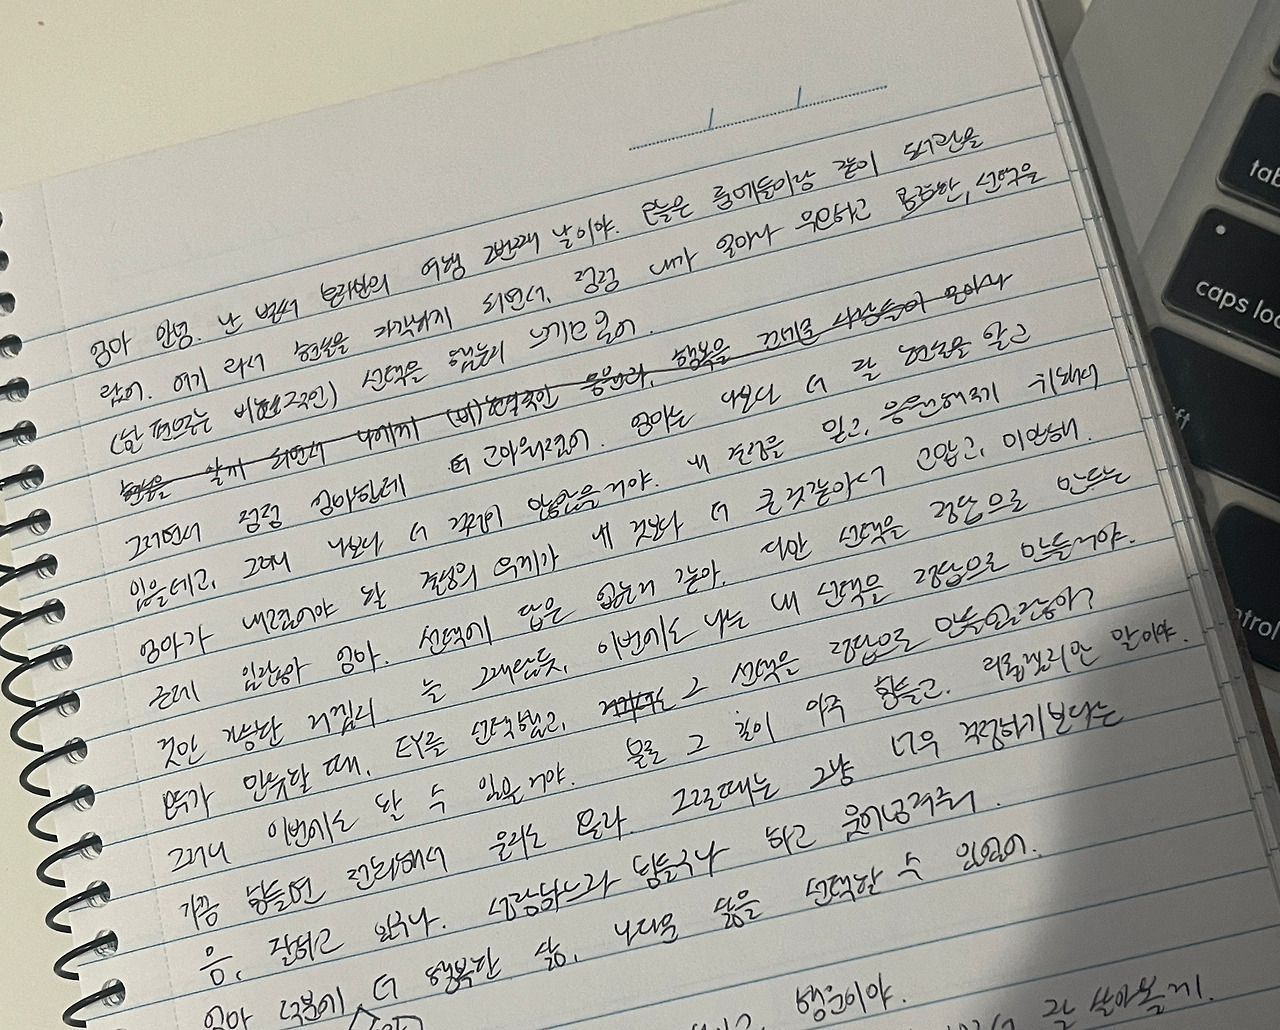 엄마 안녕. 난 벌써 보라카이 여행 2번째 날이야. 오늘은 룸메들이랑 같이 도서관을
왔어. 여기 와서 현실을 자각하게 되면서, 점점 내가 얼마나 무모하고 용감한, 선택을
(남 편으로는 비현실적인) 선택을 했는지 느끼고 있어.
현실을 알게 되면서 나에게 (비)현실적인 응원과, 행복을 건네준 사람들이
그러면서 점점 엄마한테 더 고마워졌어. 엄마는 나보다 더 잘 현실을 알고
있을테고, 그래서 나보다 더 걱정이 많았을거야. 내 결정을 믿고, 응원해주기 위해서
엄마가 내렸어야 할 결정의 무게가 내 것보다 더 큰것같아서 고맙고, 미안해.
근데 있잖아 엄마. 선택에 답은 없는거 같아. 다만 선택을 정답으로 만드는
것만 가능한 거겠지. 늘 그래왔듯, 이번에도 나는 내 선택을 정답으로 만들거야.
모두가 만류할 때, 선택했고, 그 선택을 정답으로 만들었잖아?
그러니 이번에도 할 수 있을거야. 물론 그 길이 아주 힘들고, 외롭겠지만 말이야.
가끔 힘들면 전화해서 울지도 몰라. 그럴때는 그냥 너무 걱정하기보다는
음, 잘하고 있구나. 성장하느라 힘들구나 하고 웃어넘겨줘.
엄마 덕분에 더 행복한 삶, 나다운 삶을 선택할 수 있었어.
행운이야.
잘 살아볼게.
tab
caps loc